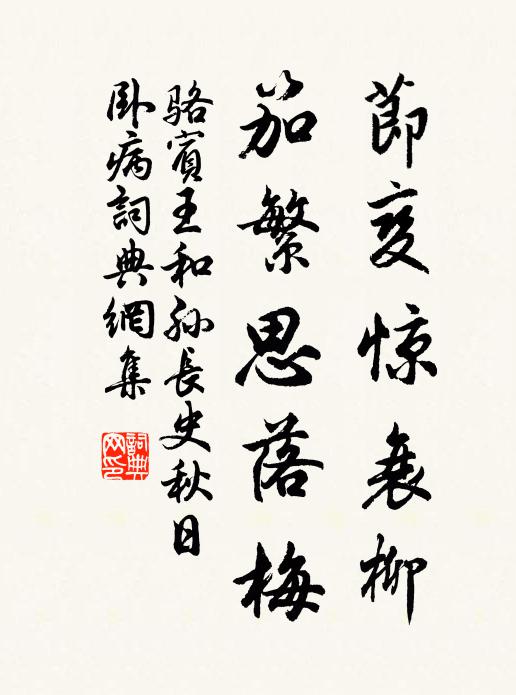 節变惊衰柳
笳繁思落梅
骆賓王和孙長史秋日
卧病詞典網集
詞典网印